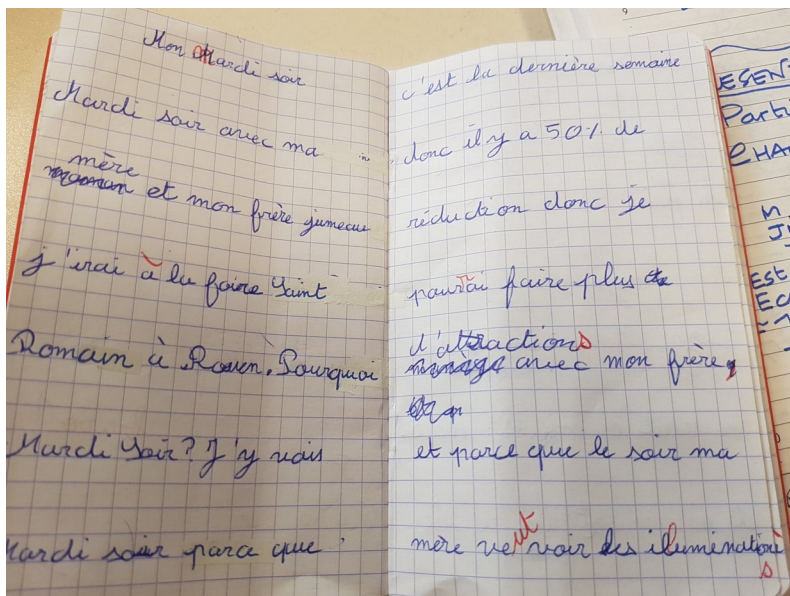 Mon Mardi soir
Mardi soir avec ma
mère
maman et mon frère jumeau
j'irai à la foire Saint
Romain à Rouen. Pourquoi
Mardi soir? J'y vais
Mardi soir parce que
c'est la dernière semaine
donc il y a 50% de
réduction donc je
pourrai faire plus de
d'attractions
manège avec mon frère,
et parce que le soir ma
mère veut voir les illuminations
ESEN
Parti
CHA
M
J
EST
EC